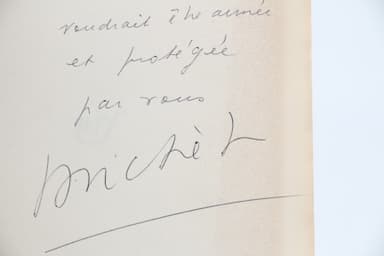 voudrait être aimée
et protégée
par vous